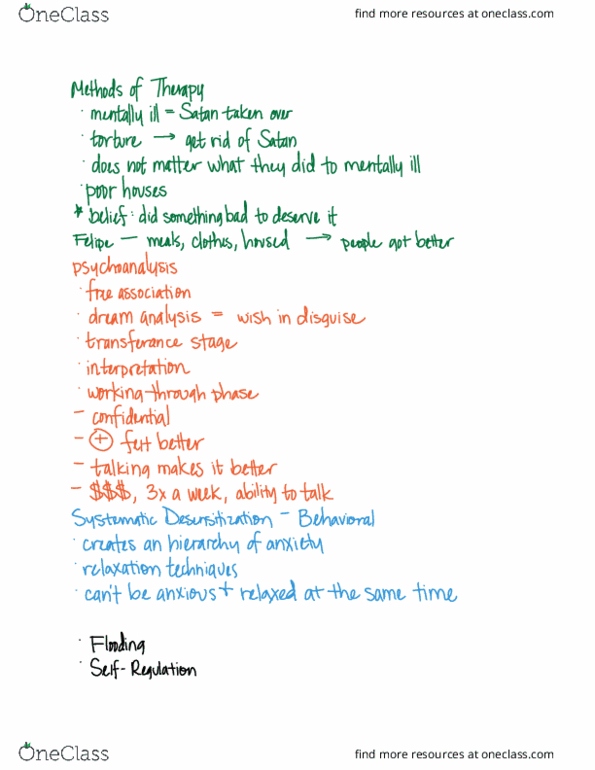 OneClass
find more resources at oneclass.com
Methods of Therapy
· mentally ill = Satan taken over
· torture → get rid of Satan
· does not matter what they did to mentally ill
· poor houses
* belief: did something bad to deserve it
Felipe — meals, clothes, housed → people got better
psychoanalysis
· free association
· dream analysis = wish in disguise
· transferance stage
· interpretation
· working-through phase
- confidential
- + felt better
- talking makes it better
- $$$, 3x a week, ability to talk
Systematic Desensitization - Behavioral
· creates an hierarchy of anxiety
· relaxation techniques
· can't be anxious + relaxed at the same time
· Flooding
· Self-Regulation
OneClass
find more resources at oneclass.com